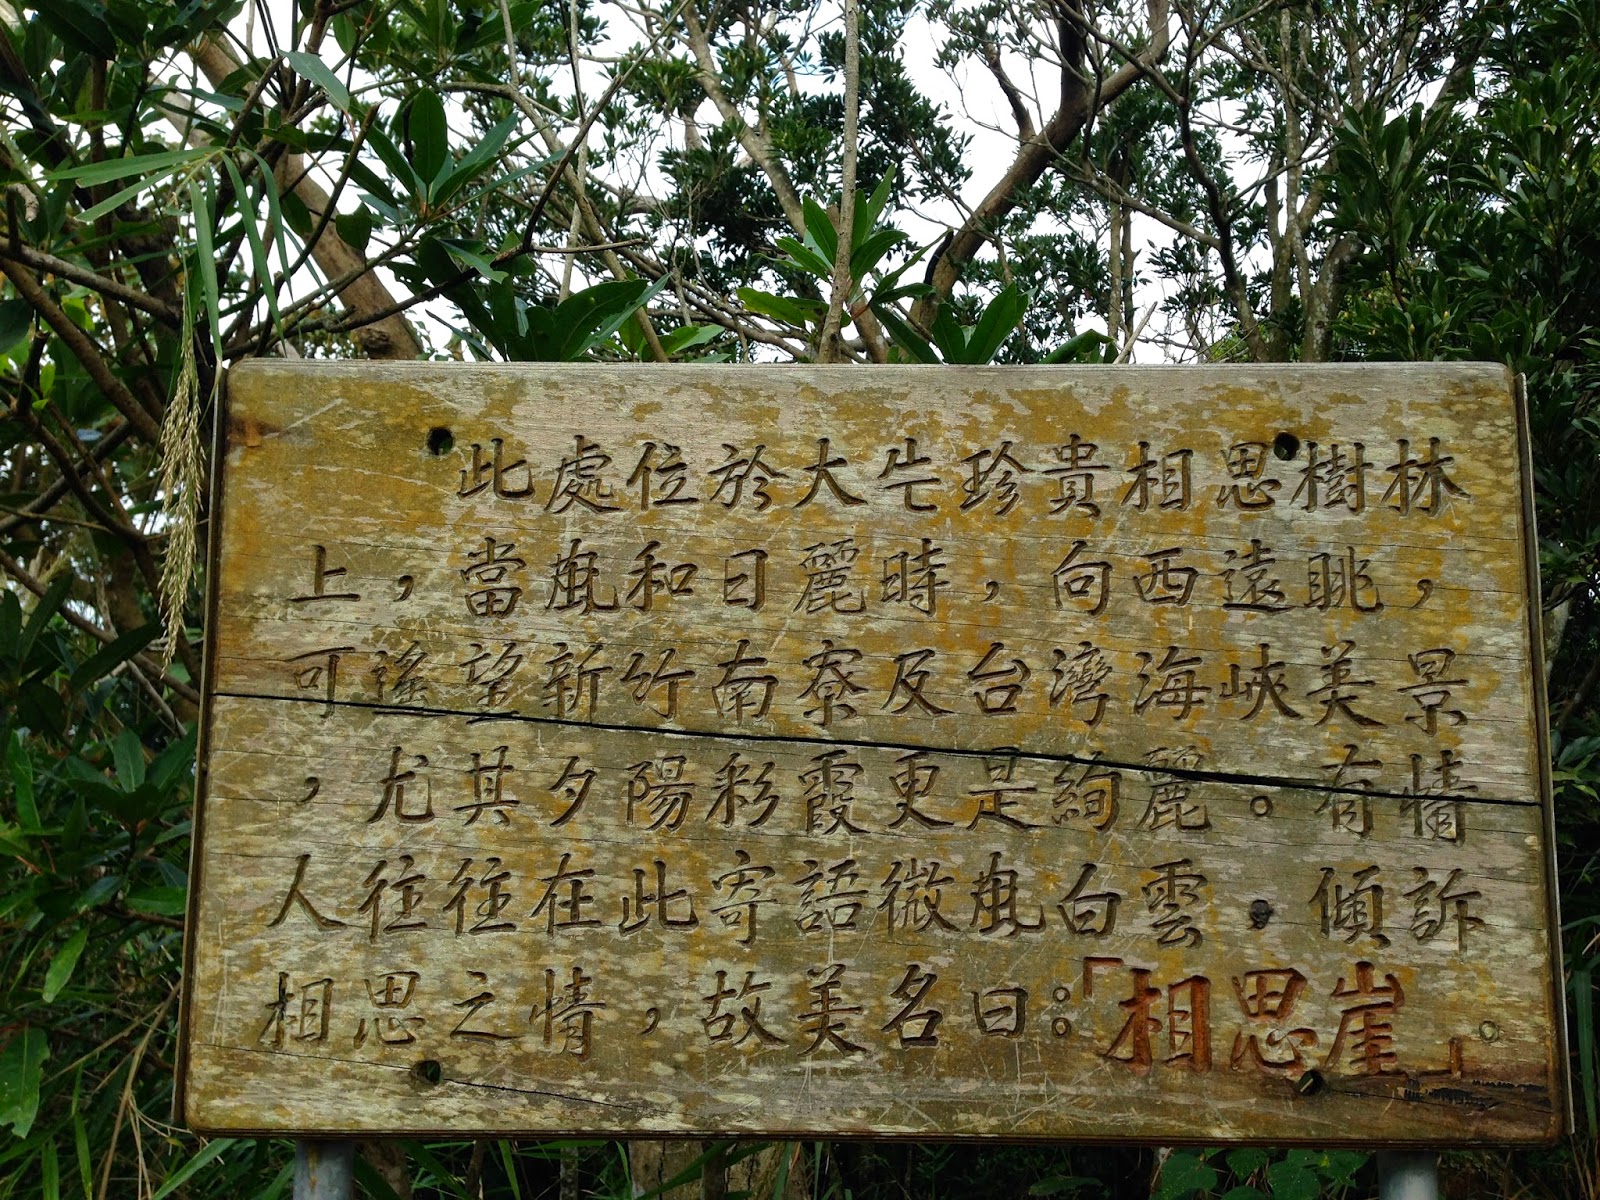 此處位於大片珍貴相思樹林
上，當風和日麗時，向西遠眺，
可遙望新竹南寮及台灣海峽美景
，尤其夕陽彩霞更是絢麗。有情
人往往在此寄語微風白雲，傾訴
相思之情，故美名曰：「相思崖」。